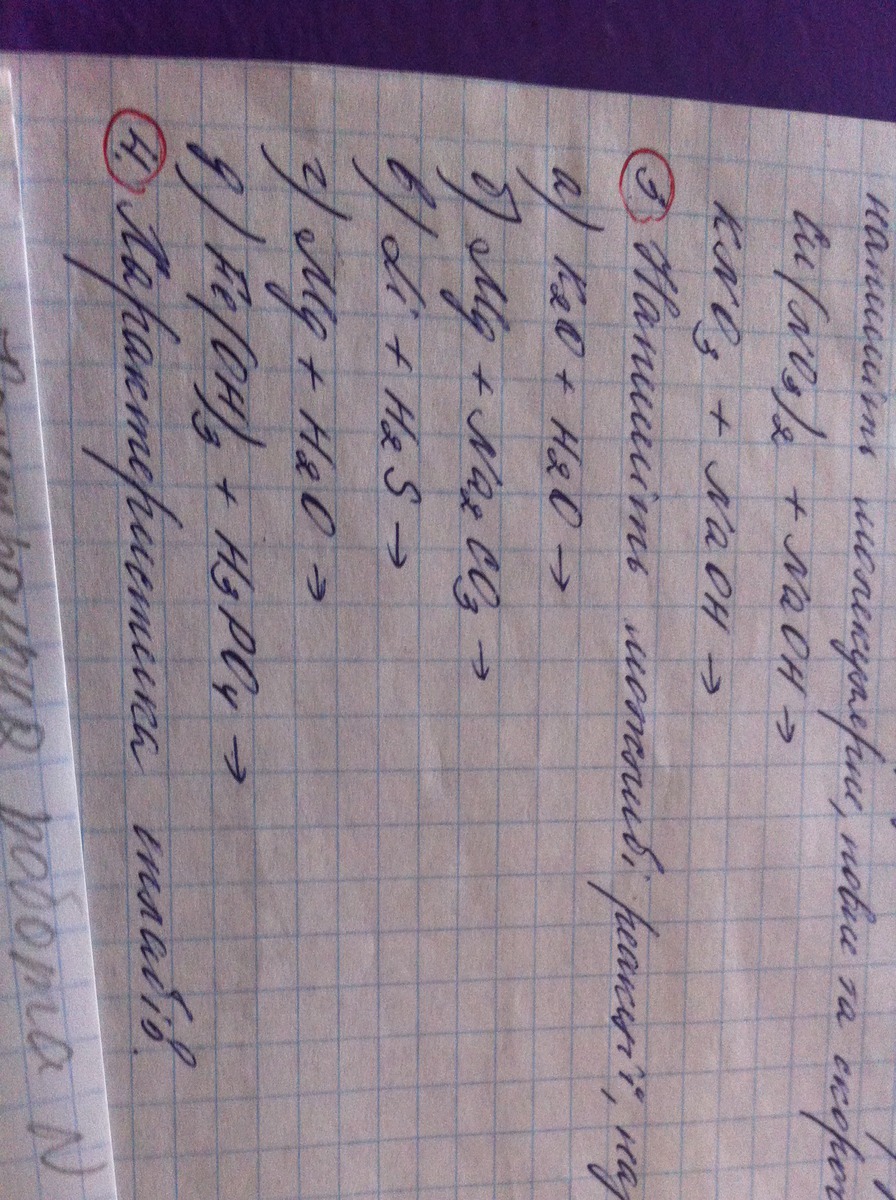 напишіть молекулярні, повні та скороч
Cu(NO3)2 + NaOH →
KNO3 + NaOH →
3. Напишіть можливі реакції, наз
а) K2O + H2O →
б) Mg + Na2CO3 →
в) Li + H2S →
г) Mg + H2O →
д) Fe(OH)3 + H3PO4 →
4. Характеристика сплавів.
робота N